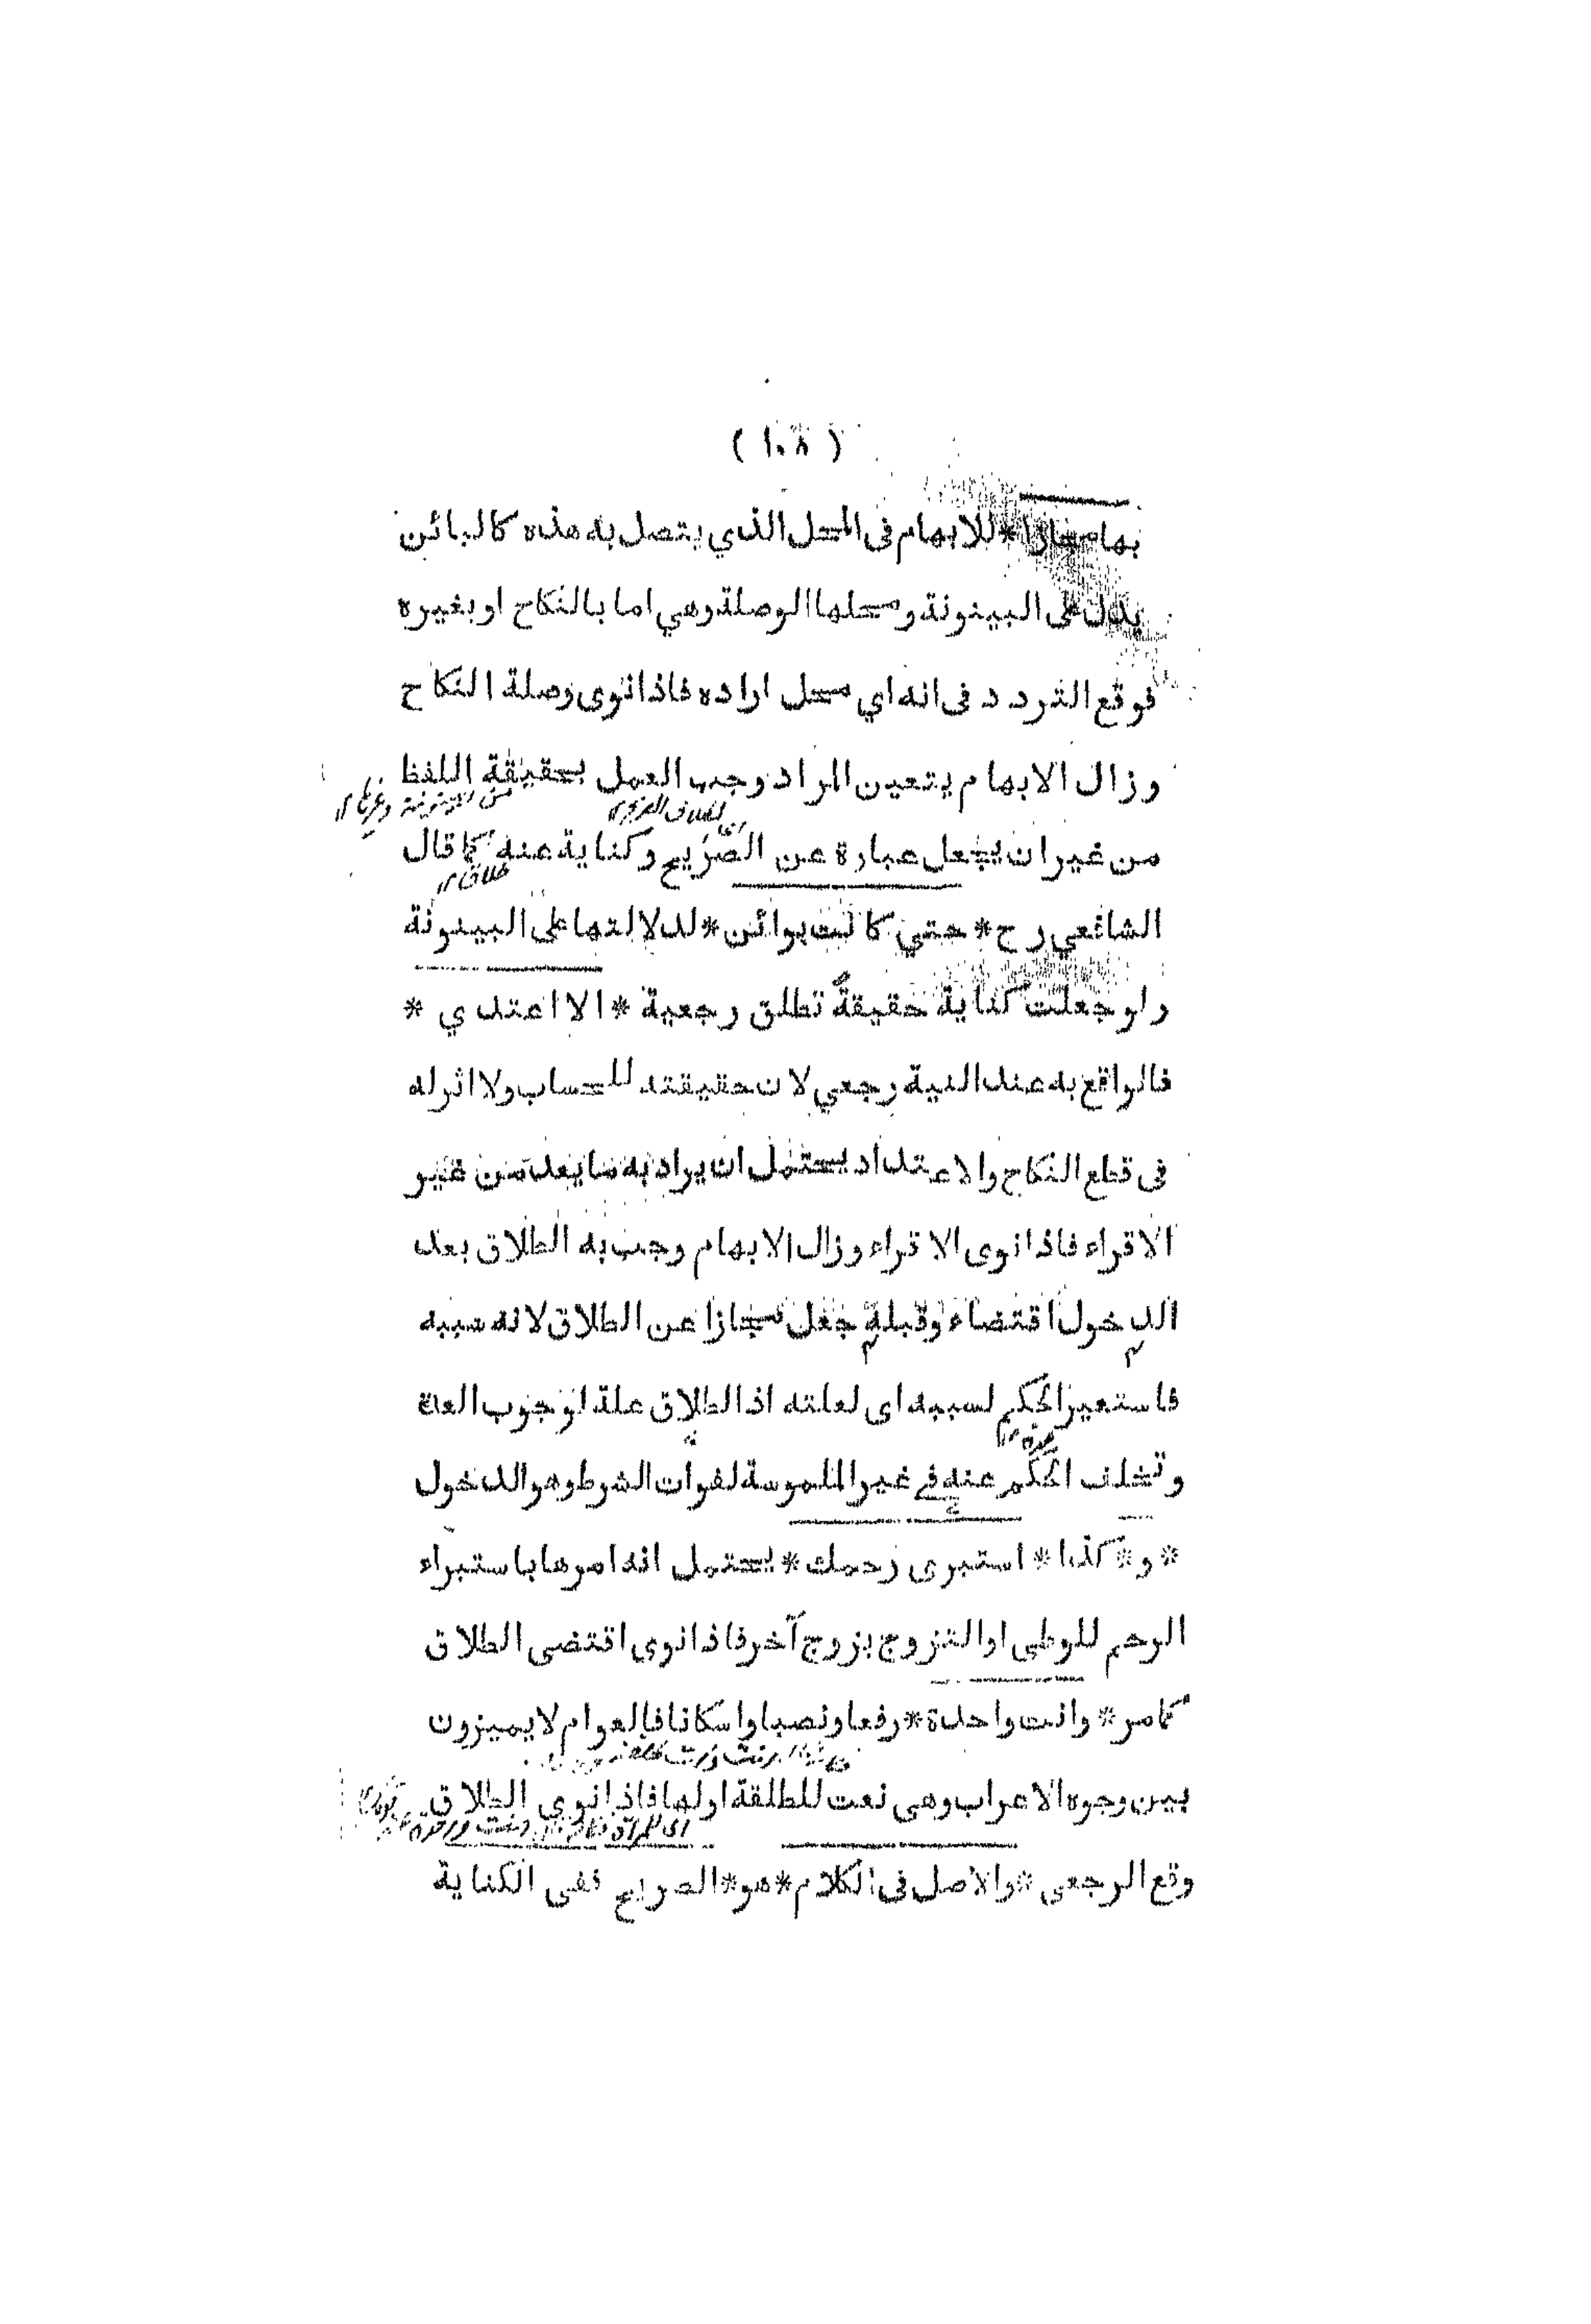 ( ١٠٨ )
بها مجازا * للابهام فى المحل الذي يتصل به هذه كالبائن
يدل على البينونة ومحلها الوصلة وهي اما بالنكاح او بغيره
فوقع التردد فى انه اي محل اراده فاذا نوى وصلة النكاح
وزال الابهام يتعين المراد وجب العمل بحقيقة اللفظ
من غير ان يجعل عبارة عن الصريح وكناية عنه كما قال
طلاقا ١٢
الشافعي رح * حتي كانت بوائن * لدلالتها على البينونة
ولو جعلت كناية حقيقة تطلق رجعية * الا اعتدي *
فالواقع به عند النية رجعي لان حقيقته للحساب ولا اثر له
فى قطع النكاح والاعتداد يحتمل ان يراد به ما يعد من غير
الاقراء فاذا نوى الاقراء وزال الابهام وجب به الطلاق بعد
الدخول اقتضاء وقبله جعل مجازا عن الطلاق لانه سببه
فاستعير الحكم لسببه اى لعلته اذ الطلاق علة لوجوب العدة
وتخلف الحكم عنه في غير الملموسة لفوات الشرط وهو الدخول
* و * كذا * استبرى رحمك * يحتمل انه امرها باستبراء
الرحم للوطى او التزوج بزوج آخر فاذا نوى اقتضى الطلاق
كما مر * وانت واحدة * رفعا ونصبا واسكانا فالعوام لا يميزون
بين وجوه الاعراب وهى نعت للطلقة اولها فاذا نوي الطلاق
وقع الرجعى * والاصل فى الكلام * هو * الصريح ففى الكناية